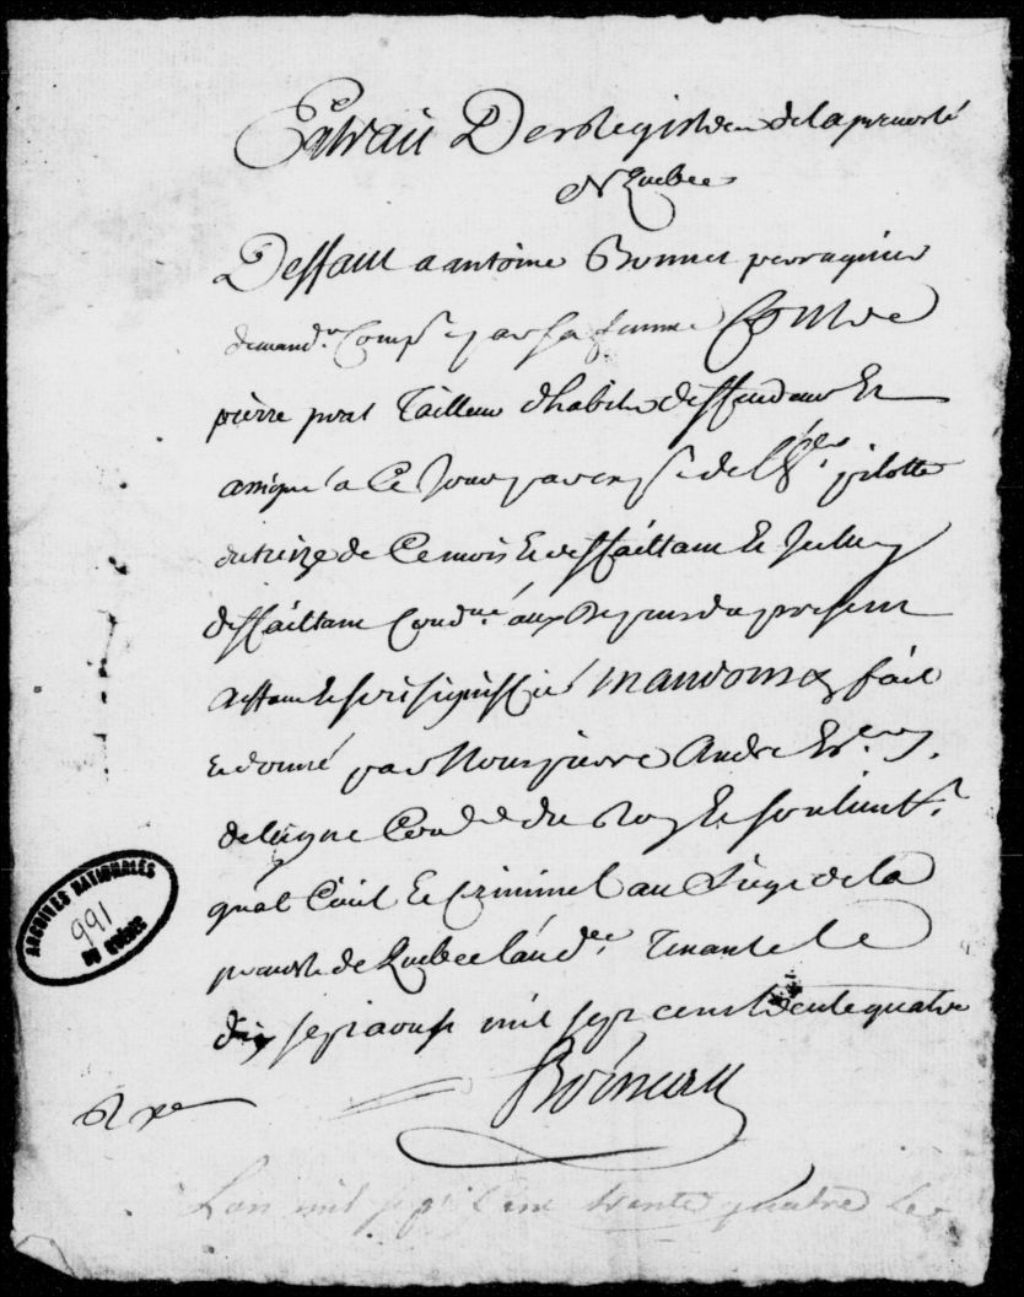 Extrait Des Registres de la prevosté
de Quebec
Deffaut a antoine Bonnet perruquier
demandr. Compt par sa femme Contre
pierre prat Tailleur dhabits deffendeur Et
assigné a Ce Jour par exp. de pilotte
du treize de Ce mois Et deffaillant Et
deffaillant Condné. aux Depens du present
deffaut Et sera signiffié Mandons & fait
Et donné par Nous pierre André
de leigne Conser du Roy Et son lieutt.
gnal Civil Et Criminel au Siege de la
prevosté de Quebec laud. Tenante le
dix sept aoust mil sept cens trente quatre
Boisseau
L'an mil sept Cent trente quatre le
ARCHIVES NATIONALES
991
DU QUÉBEC